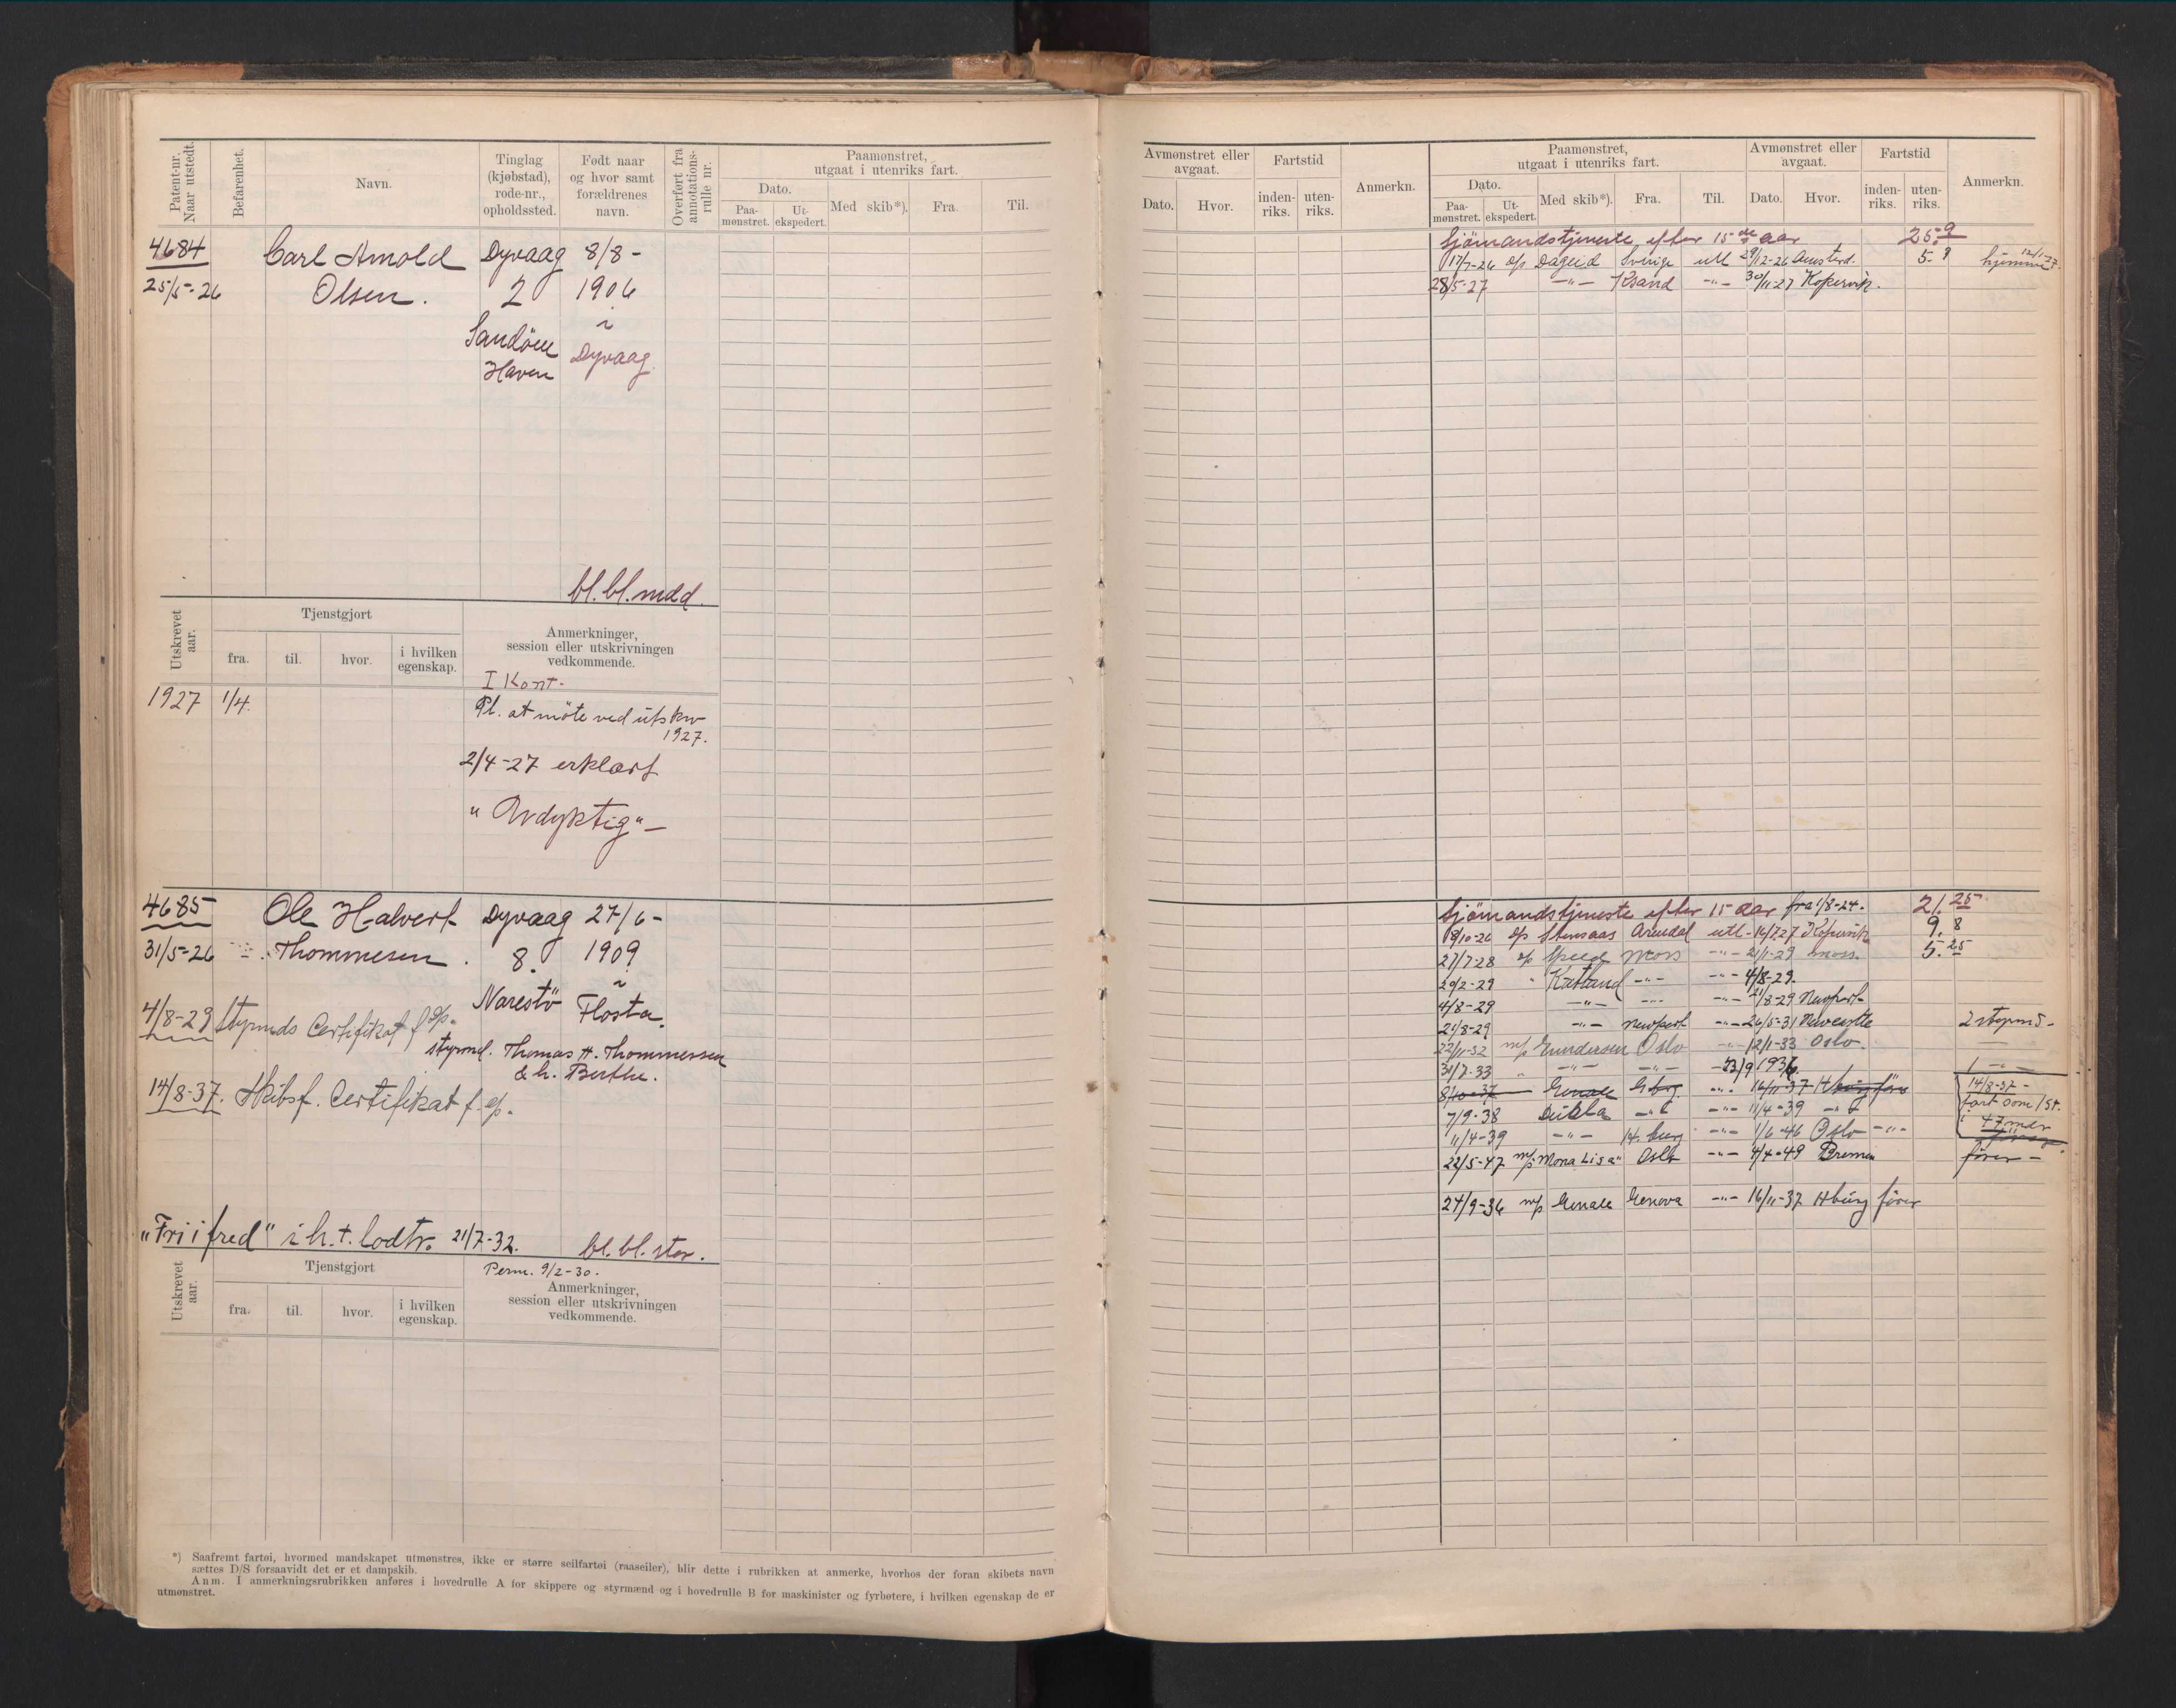 Patent-nr. Naar utstedt.
Befarenhet.
Navn.
Tinglag (kjøbstad), rode-nr., opholdssted.
Født naar og hvor samt forældrenes navn.
Overført fra annotations-rulle nr.
Paamønstret, utgaat i utenriks fart.
Dato.
Paa-mønstret.
Ut-ekspedert.
Med skib*).
Fra.
Til.
4684
25/5-26
Carl Arnold
Olsen.
Dyvaag
2
Sandöen
Haven
8/8-
1906
i
Dyvaag
bl.bl.mdd.
Utskrevet aar.
Tjenstgjort
fra.
til.
hvor.
i hvilken egenskap.
Anmerkninger, session eller utskrivningen vedkommende.
I Kont-
1927 1/4.
Pl. at møte ved utskr
1927.
2/4-27 erklært
"Udyktig"-
4685
31/5-26
Ole Halvert
Thommesen.
Dyvaag
8.
Narestö
27/6-
1909
i
Flosta.
4/8-29 Styrmds Certifikat f. d/s.
styrmd. Thomas H. Thommessen
& h. Berthe.
14/8-37. Skibsf. Certifikat f. d/s.
"Fri i fred" i h. t. lodtr. 21/7-32.
bl. bl. stor.
Utskrevet aar.
Tjenstgjort
fra.
til.
hvor.
i hvilken egenskap.
Perm. 9/2-30.
Anmerkninger, session eller utskrivningen vedkommende.
*) Saafremt fartøi, hvormed mandskapet utmønstres, ikke er større seilfartøi (raaseiler), blir dette i rubrikken at anmerke, hvorhos der foran skibets navn
sættes D/S forsaavidt det er et dampskib.
Anm. I anmerkningsrubrikken anføres i hovedrulle A for skippere og styrmænd og i hovedrulle B for maskinister og fyrbøtere, i hvilken egenskap de er
utmønstret.
Avmønstret eller avgaat.
Dato.
Hvor.
Fartstid
inden-riks.
uten-riks.
Anmerkn.
Paamønstret, utgaat i utenriks fart.
Dato.
Paa-mønstret.
Ut-ekspedert.
Med skib*).
Fra.
Til.
Avmønstret eller avgaat.
Dato.
Hvor.
Fartstid
inden-riks.
uten-riks.
Anmerkn.
Sjömandstjeneste efter 15de aar 25.9
17/7-26 d/s Dageid Sverige utl 29/12-26 Amsterd. 5.9 hjemme 12/1-27.
28/5-27 -"- Ksand -"- 30/11-27 Kopervik.
Sjömandstjeneste efter 15 aar fra 1/8-24. 21.25
18/10-26 d/s Stensaas Arendal utl - 14/7.27 Kopervik 9.8
27/7-28 d/s Speed Moss -"- 2/1-29 moss. 5.25
20/2-29 " Katland -"- -"- 4/8-29.
4/8-29 -"- -"- -"- 21/8-29 Newport
21/8-29 -"- newport -"- 26/5-31 Newcastle 2 styrmd-
22/11-32 m/s Gundersen Oslo - 12/11-33 Oslo.
31/7-33 " -"- -"- - 23/9 1936. 1 -"-
8/10-37 Genale Gbrg. -"- 16/11-37 Hburg förer
14/8-37 -
fart som 1 St.
47 mdr
7/9-38 Dukla -"- -"- 11/4-39 -"-
11/4-39 -"- H.burg -"- 1/6-46 Oslo -"-
22/5-47 m/s "Mona Lisa" Oslo -"- 4/4-49 Bremen förer -
24/9-36 m/s Genale Genova -"- 16/11-37 Hburg förer